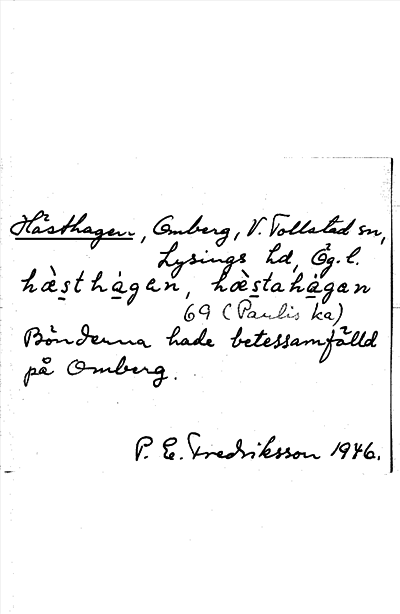 Hästhagen, Omberg, V. Tollstad sn,
Lysings hd, Ög. l.
hæ̀sthágen, hæ̀stahágan
69 (Paulis ka)
Bönderna hade betessamfälld
på Omberg.
P. E. Fredriksson 1946.